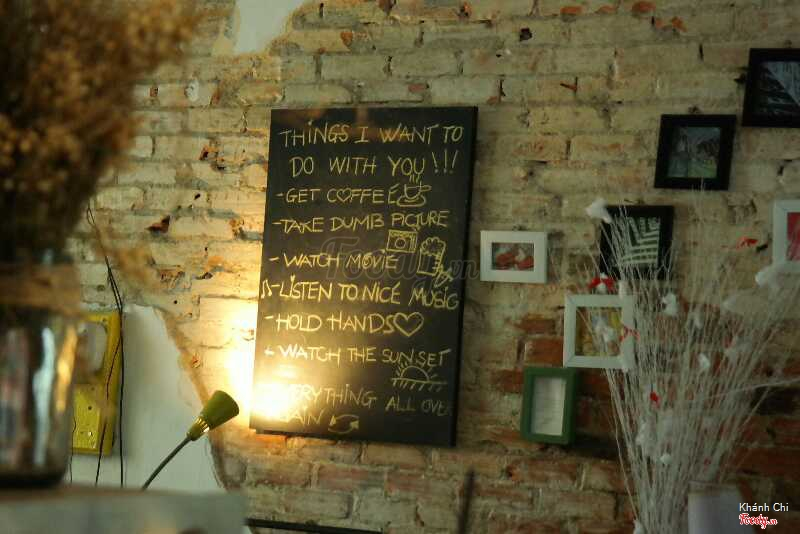 THINGS I WANT TO
DO WITH YOU !!!
- GET COFFEE
- TAKE DUMB PICTURE
- WATCH MOVIE
- LISTEN TO NICE MUSIC
- HOLD HANDS
- WATCH THE SUNSET
EVERYTHING ALL OVER
Foody.vn
Khánh Chi
Foody.vn